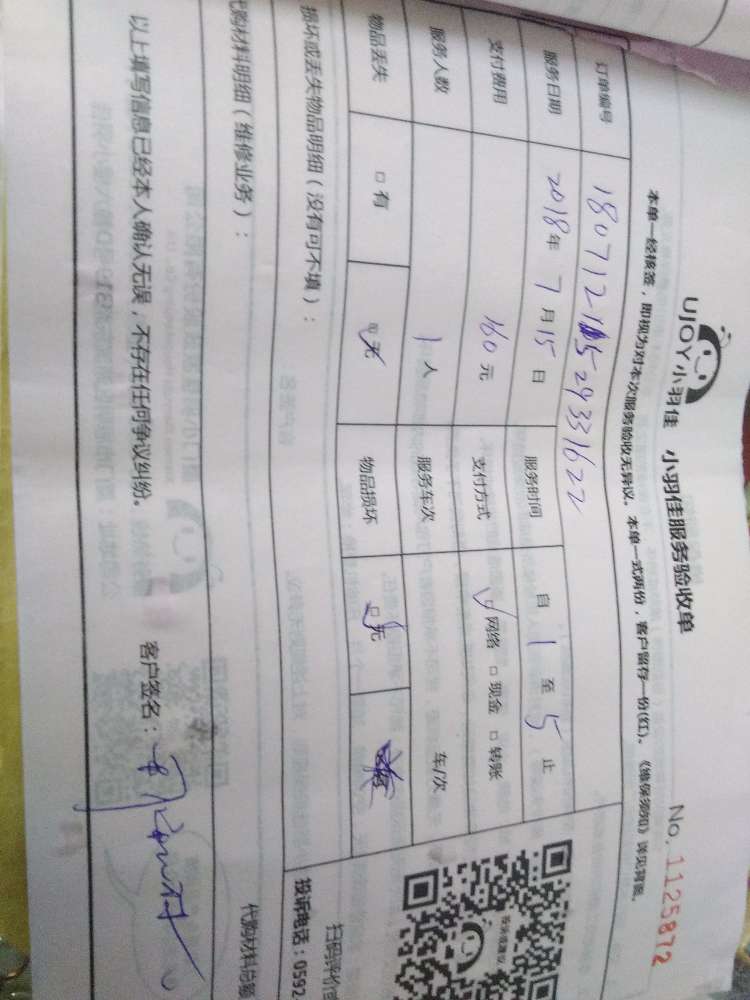 UJOY小羽佳 小羽佳服务验收单 No.1125872
本单一经核签，即视为对本次服务验收无异议。本单一式两份，客户留存一份(红)。《维保须知》详见背面。
订单编号 18071211529331622
服务日期 2018年7月15日 服务时间 自1至5止
支付费用 160元 支付方式 网络 □现金 □转账
服务人数 1人 服务车次 车/次
物品丢失 □有 无 物品损坏 □无
损坏或丢失物品明细（没有可不填）：
扫码评价
投诉电话：0592
代购材料明细（维修业务）： 代购材料总额
以上填写信息已经本人确认无误，不存在任何争议纠纷。 客户签名：